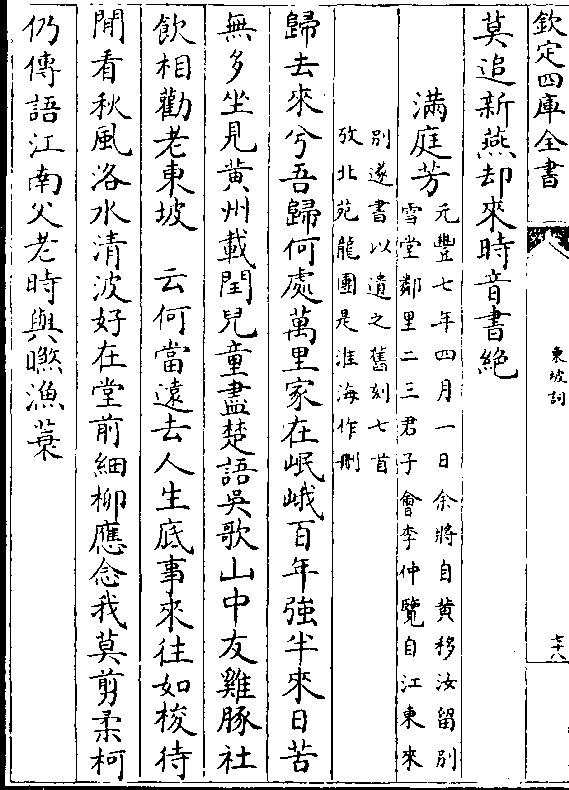 欽定四庫全書
東坡詞
七十八
莫追新燕却來時音書絶
滿庭芳
元豐七年四月一日余將自黄移汝留别
雪堂鄰里二三君子會李仲覽自江東來
别遂書以遺之舊刻七首
攷北苑龍團是淮海作刪
歸去來兮吾歸何處萬里家在岷峨百年強半來日苦
無多坐見黄州載閏兒童盡楚語吳歌山中友雞豚社
飲相勸老東坡　云何當逺去人生底事來往如梭待
閒看秋風洛水清波好在堂前細栁應念我莫剪柔柯
仍傳語江南父老時與曬漁蓑